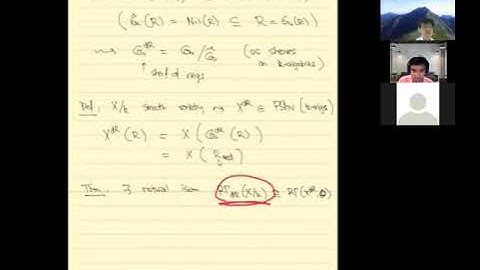 ( Ĝₐ(R) = Nil(R) ⊆ R = Gₐ(R) )
⇝ Gₐ^dR = Gₐ/Ĝₐ (as sheaves
on k-algebras)
sheaf of rings
Def. X/k smooth variety ⇝ X^dR ∈ PShv(k-algs)
X^dR(R) = X(Gₐ^dR(R))
= X(R_red)
Thm. ∃ natural isom RΓ_dR(X/k) ≅ RΓ(X^dR, O)